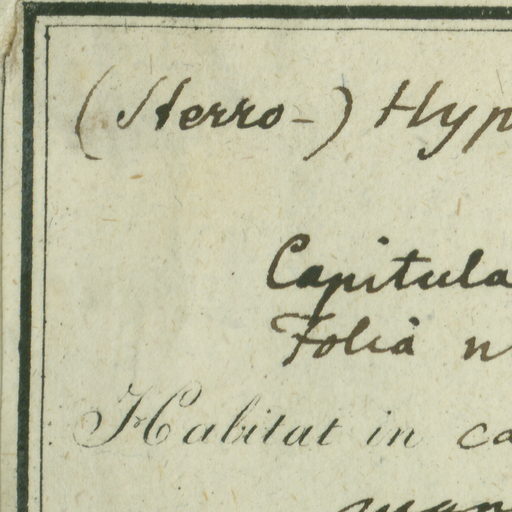 (Sterro-) Hyp
Capitula
Folia n
Habitat in ca